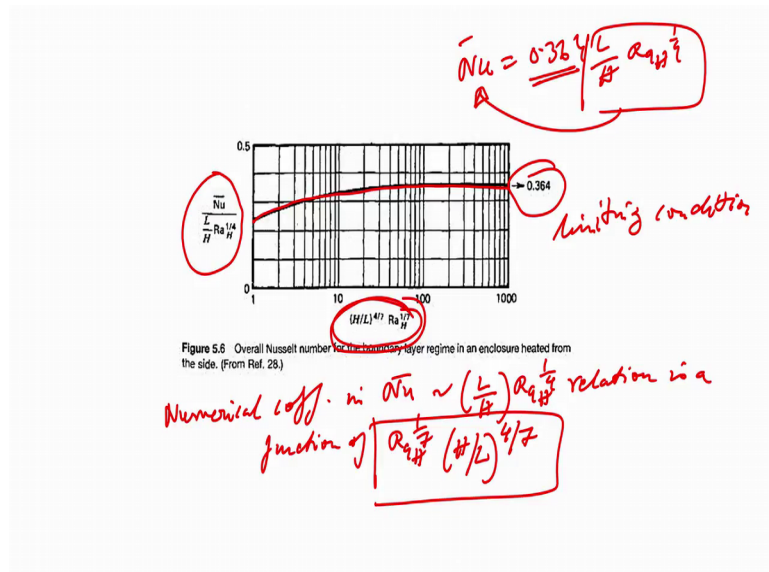 N̄u = 0.364 L/H Ra_H^1/4
0.5
N̄u
L/H Ra_H^1/4
0.364
limiting condition
0
1 10 100 1000
(H/L)^4/7 Ra_H^1/7
Figure 5.6 Overall Nusselt number for the boundary layer regime in an enclosure heated from
the side. (From Ref. 28.)
Numerical coff. in N̄u ~ (L/H) Ra_H^1/4 relation is a
function of Ra_H^1/7 (H/L)^4/7